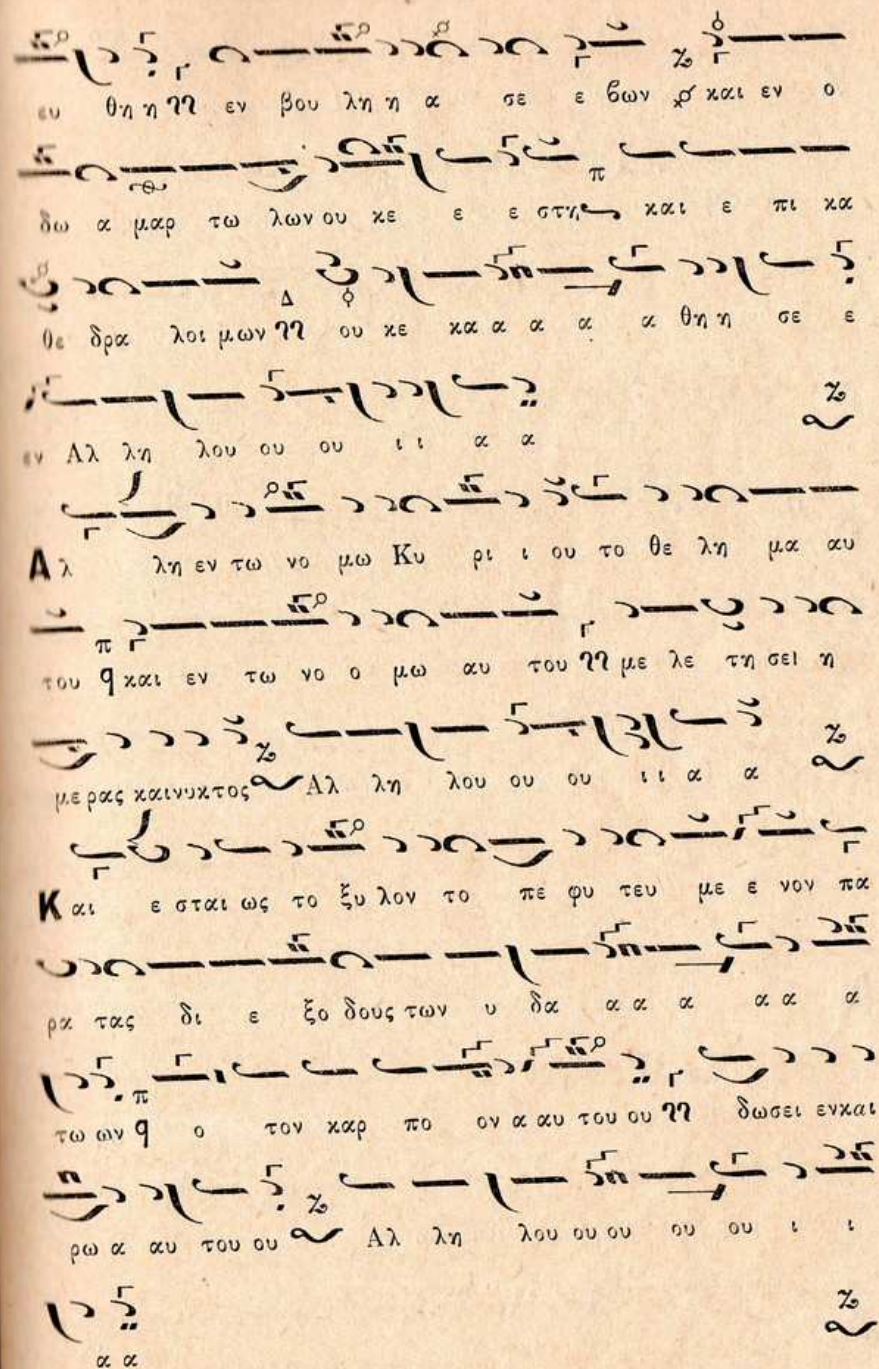 ευ θη η εν βου λη η α σε ε βων και εν ο
δω α μαρ τω λων ου κε ε ε στη και ε πι κα
θε δρα λοι μων ου κε κα α α α α θη η σε ε
εν Αλ λη λου ου ου ι ι α α
Αλ λη εν τω νο μω Κυ ρι ι ου το θε λη μα αυ
του και εν τω νο ο μω αυ του με λε τη σει η
με ρας και νυ κτος Αλ λη λου ου ου ι ι α α
Και ε σται ως το ξυ λον το πε φυ τευ με ε νον πα
ρα τας δι ε ξο δους των υ δα α α α α α α
τω ων ο τον καρ πο ον α αυ του ου δωσει εν και
ρω α αυ του ου Αλ λη λου ου ου ου ου ι ι
α α